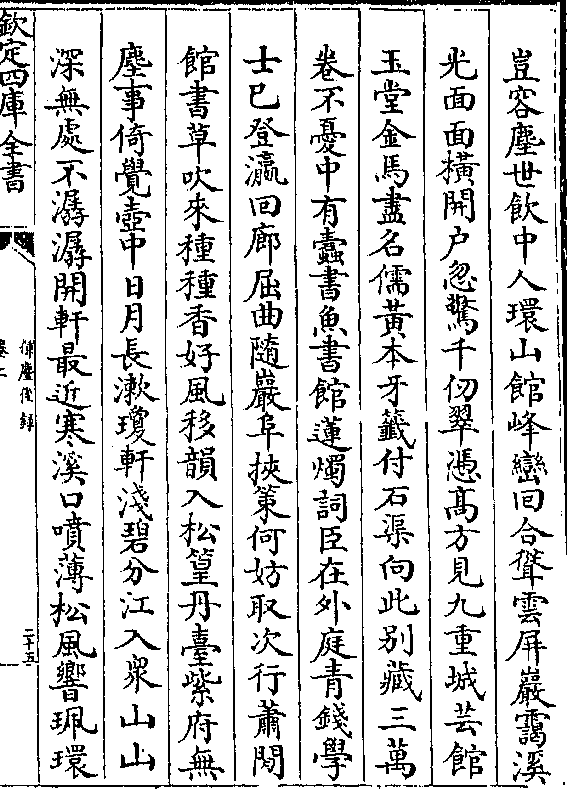 豈容塵世飲中人環山館峰巒回合聳雲屏巖靄溪
光面面橫開戶忽驚千仞翠憑髙方見九重城芸館
玉堂金馬盡名儒黃本牙籤付石渠向此别藏三萬
卷不憂中有蠧書魚書館蓮燭詞臣在外庭青錢學
士已登瀛回廊屈曲隨巖阜挾䇿何妨取次行蕭閒
館書草吹來種種香好風移韻入松篁丹臺紫府無
塵事倚覺壺中日月長漱瓊軒淺碧分江入衆山山
深無處不潺潺開軒最近寒溪口噴薄松風響珮環
欽定四庫全書
揮麈後録
卷二
二十五